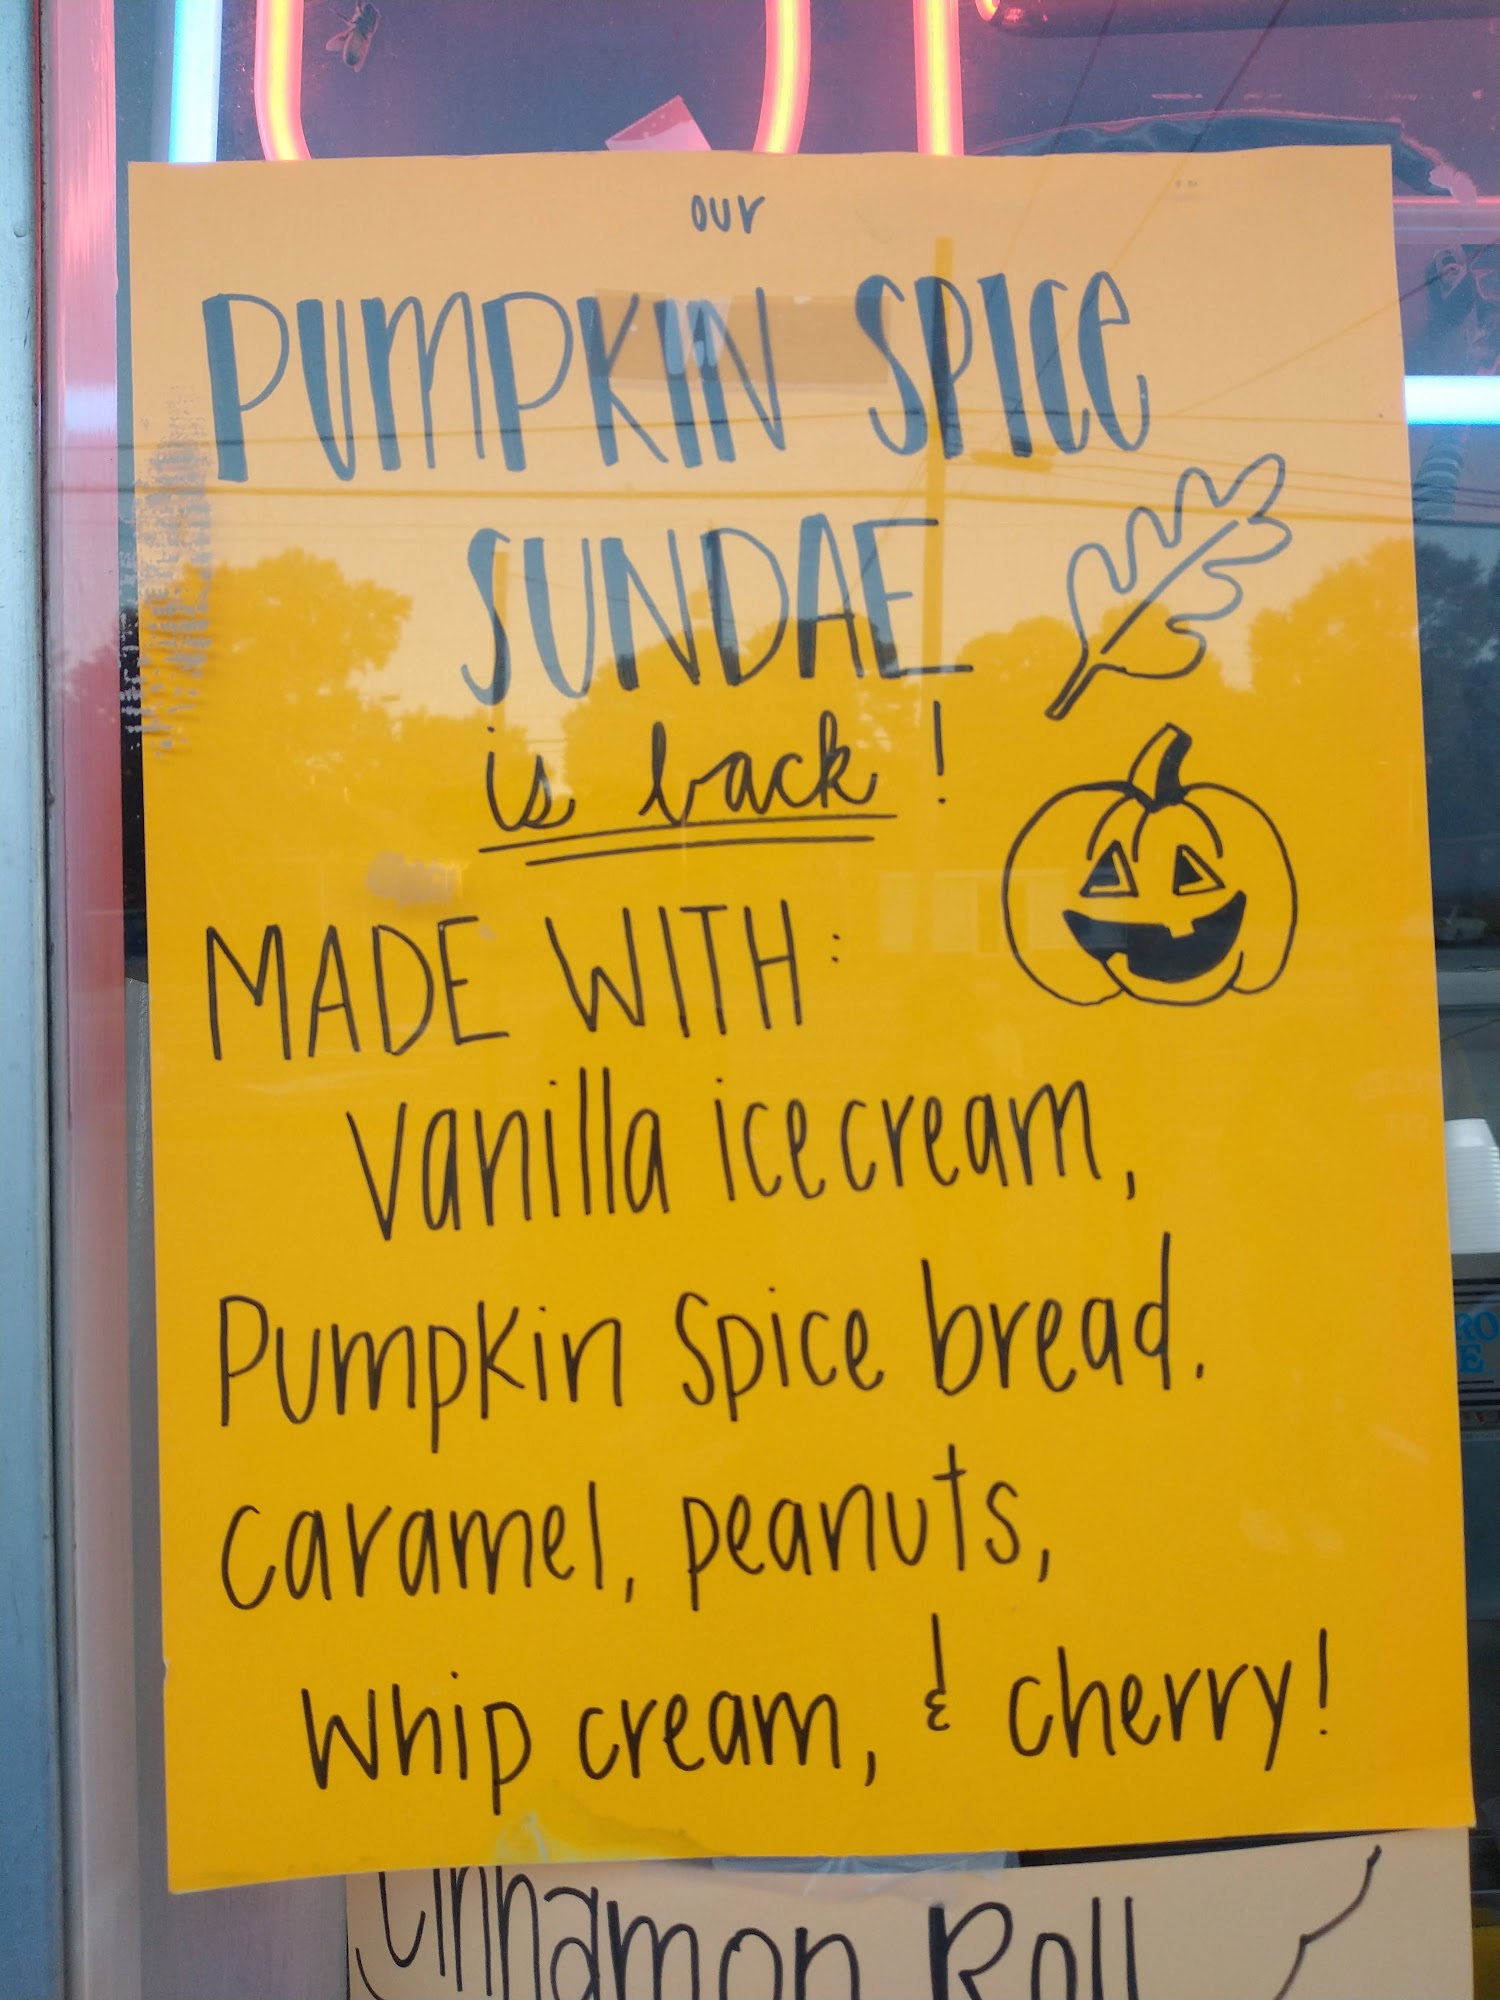 our
PUMPKIN SPICE
SUNDAE
is back!
MADE WITH:
vanilla icecream,
Pumpkin Spice bread.
caramel, peanuts,
whip cream, & cherry!
Cinnamon Roll